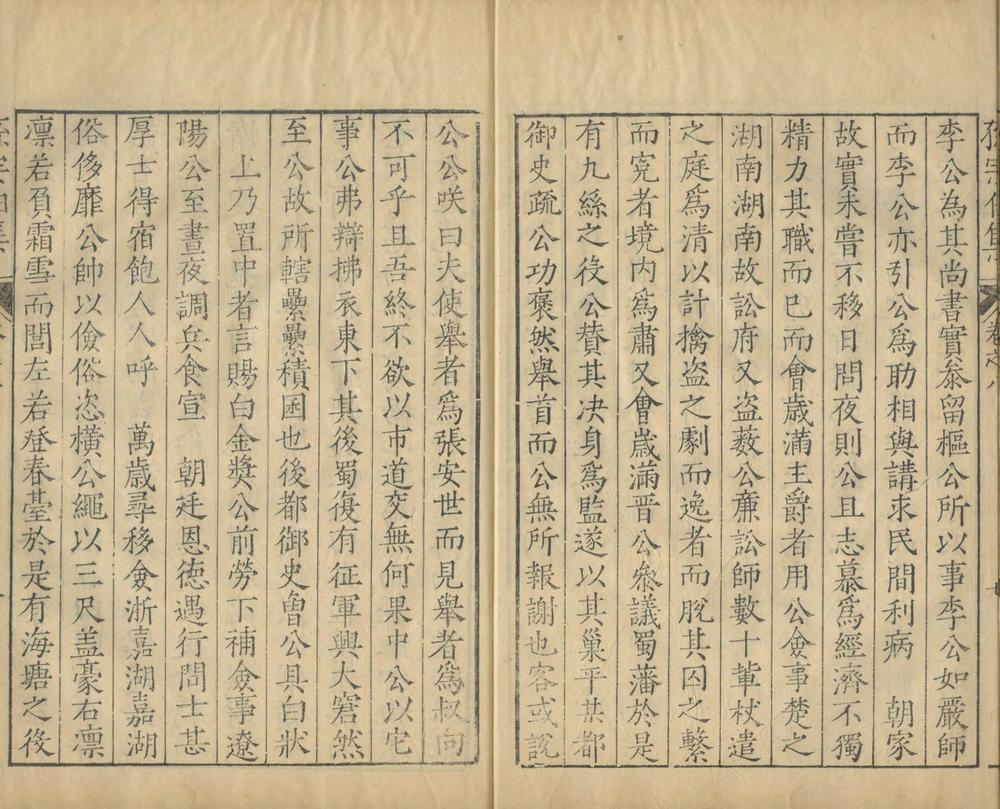 李公為其尚書實叅留樞公所以事李公如嚴師
而李公亦引公為助相與講求民間利病　朝家
故實未嘗不移日問夜則公且志慕為經濟不獨
精力其職而已而會歲滿主爵者用公僉事楚之
湖南湖南故訟府又盗藪公廉訟師數十軰杖遣
之庭爲清以計擒盗之劇而逸者而脫其囚之繫
而寃者境内爲肅又會嵗滿晋公叅議蜀藩於是
有九絲之役公賛其决身爲監遂以其巢平其都
御史疏公功褒然舉首而公無所報謝也客或說
公公咲曰夫使舉者爲張安世而見舉者爲叔向
不可乎且吾終不欲以市道交無何果中公以宅
事公弗辯拂衣東下其後蜀復有征軍興大窘然
至公故所轄纍纍積囷也後都御史魯公具白狀
上乃置中者言賜白金獎公前勞下補僉事遼
陽公至晝夜調兵食宣　朝廷恩德遇行間士甚
厚士得宿飽人人呼　萬歳尋移僉浙嘉湖嘉湖
俗侈靡公帥以儉俗恣橫公繩以三尺盖豪右凛
凛若負霜雪而閭左若登春臺於是有海塘之後